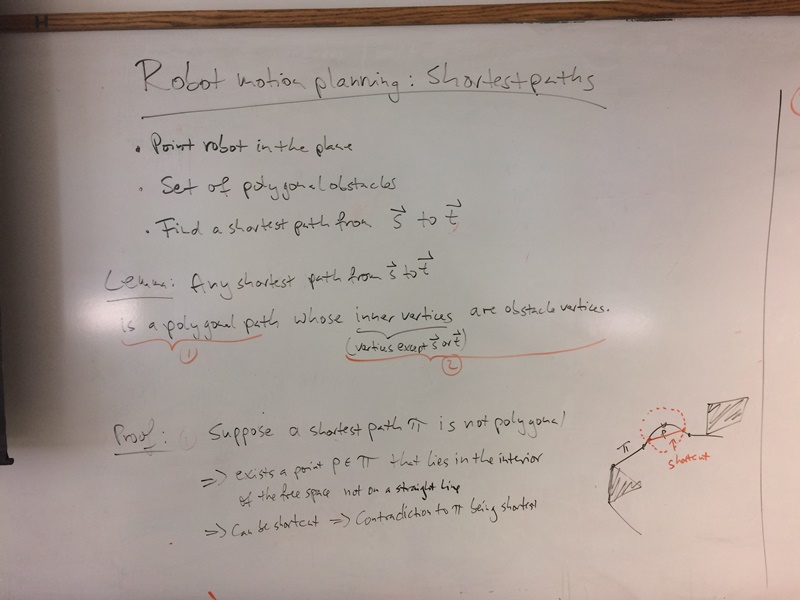 Robot motion planning: Shortest paths
• Point robot in the plane
• Set of polygonal obstacles
• Find a shortest path from s⃗ to t⃗
Lemma: Any shortest path from s⃗ to t⃗
is a polygonal path whose inner vertices are obstacle vertices.
(vertices except s⃗ or t⃗)
①
②
Proof: ① Suppose a shortest path π is not polygonal
⇒ exists a point p ∈ π that lies in the interior
of the free space not on a straight line
⇒ Can be shortcut ⇒ Contradiction to π being shortest
π
p
shortcut